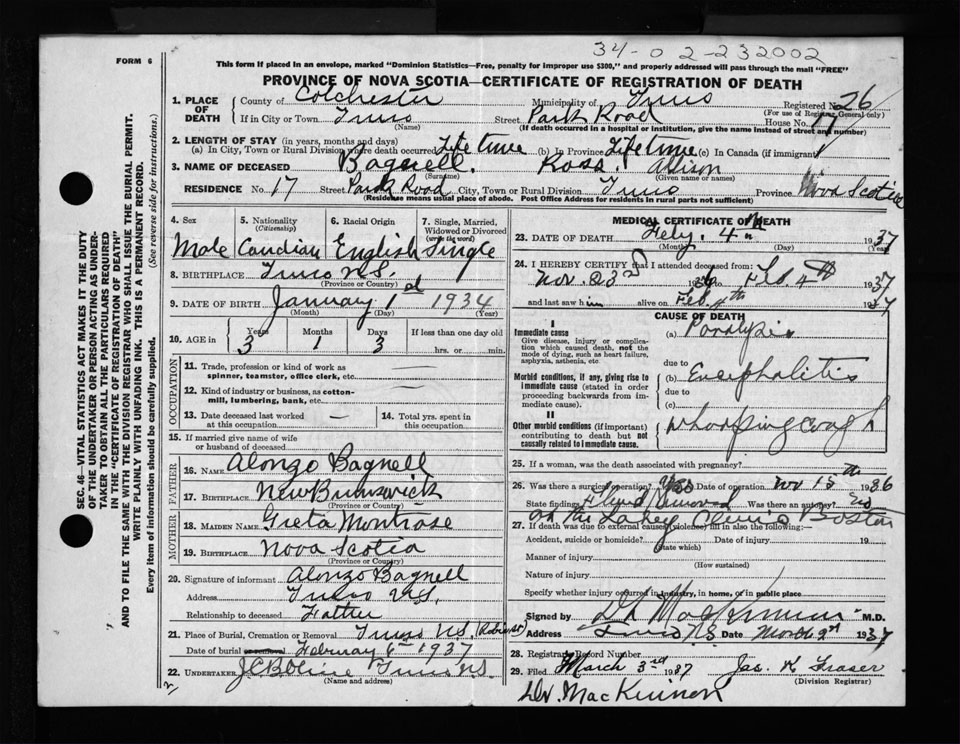 34-02-232002
FORM 6
This form if placed in an envelope, marked "Dominion Statistics—Free, penalty for improper use $300," and properly addressed will pass through the mail "FREE"
PROVINCE OF NOVA SCOTIA—CERTIFICATE OF REGISTRATION OF DEATH
SEC. 46—VITAL STATISTICS ACT MAKES IT THE DUTY
OF THE UNDERTAKER OR PERSON ACTING AS UNDER-
TAKER TO OBTAIN ALL THE PARTICULARS REQUIRED
IN THE "CERTIFICATE OF REGISTRATION OF DEATH"
AND TO FILE THE SAME WITH THE DIVISION REGISTRAR WHO SHALL ISSUE THE BURIAL PERMIT.
WRITE PLAINLY WITH UNFADING INK. THIS IS A PERMANENT RECORD.
Every item of information should be carefully supplied. (See reverse side for instructions.)
1. PLACE OF DEATH County of Colchester Municipality of Truro Registered No. 26
(For use of Registrar General only)
If in City or Town Truro (Name) Street Park Road House No. 17
(If death occurred in a hospital or institution, give the name instead of street and number)
2. LENGTH OF STAY (in years, months and days)
(a) In City, Town or Rural Division where death occurred Life time (b) In Province Lifetime (c) In Canada (if immigrant)
3. NAME OF DECEASED Bagnell Ross Alison
(Surname) (Given name or names)
RESIDENCE No. 17 Street Park Road City, Town or Rural Division Truro Province Nova Scotia
(Residence means usual place of abode. Post Office Address for residents in rural parts not sufficient)
4. Sex 5. Nationality (Citizenship) 6. Racial Origin 7. Single, Married, Widowed or Divorced (write the word)
Male Canadian English Single
8. BIRTHPLACE Truro N.S.
(Province or Country)
9. DATE OF BIRTH January 1st 1934
(Month) (Day) (Year)
10. AGE in Years Months Days If less than one day old
3 1 3 hrs. or min.
OCCUPATION
11. Trade, profession or kind of work as spinner, teamster, office clerk, etc. —
12. Kind of industry or business, as cotton-mill, lumbering, bank, etc. —
13. Date deceased last worked at this occupation — 14. Total yrs. spent in this occupation
15. If married give name of wife or husband of deceased
FATHER
16. NAME Alonzo Bagnell
17. BIRTHPLACE New Brunswick
(Province or Country)
MOTHER
18. MAIDEN NAME Greta Montrose
19. BIRTHPLACE Nova Scotia
(Province or Country)
20. Signature of informant Alonzo Bagnell
Address Truro N.S.
Relationship to deceased Father
21. Place of Burial, Cremation or Removal Truro N.S.
Date of burial or removal February 6th 1937
22. UNDERTAKER Truro N.S.
(Name and address)
MEDICAL CERTIFICATE OF DEATH
23. DATE OF DEATH Feby. 4th 1937
(Month) (Day) (Year)
24. I HEREBY CERTIFY that I attended deceased from:
Nov. 23rd 1936 to Feb. 4th 1937
and last saw him alive on Feb. 4th 1937
CAUSE OF DEATH
I
Immediate cause
Give disease, injury or complication which caused death, not the mode of dying, such as heart failure, asphyxia, asthenia, etc.
(a) Paralysis
due to
Morbid conditions, if any, giving rise to immediate cause (stated in order proceeding backwards from immediate cause).
(b) Encephalitis
due to
(c)
II
Other morbid conditions (if important) contributing to death but not causally related to immediate cause.
Whooping Cough
25. If a woman, was the death associated with pregnancy?
26. Was there a surgical operation? Yes Date of operation Nov 1936
State findings Fluid Removed Was there an autopsy? No
at the Lahey Clinic Boston
27. If death was due to external causes (violence) fill in also the following:—
Accident, suicide or homicide? Date of injury 19
(State which)
Manner of injury
(How sustained)
Nature of injury
Specify whether injury occurred in industry, in home, or in public place
Signed by MacKinnon M.D.
Address Truro N.S. Date March 1937
28. Registrars Record Number
29. Filed March 3rd 1937 Jas. K Fraser
(Division Registrar)
Dr. MacKinnon